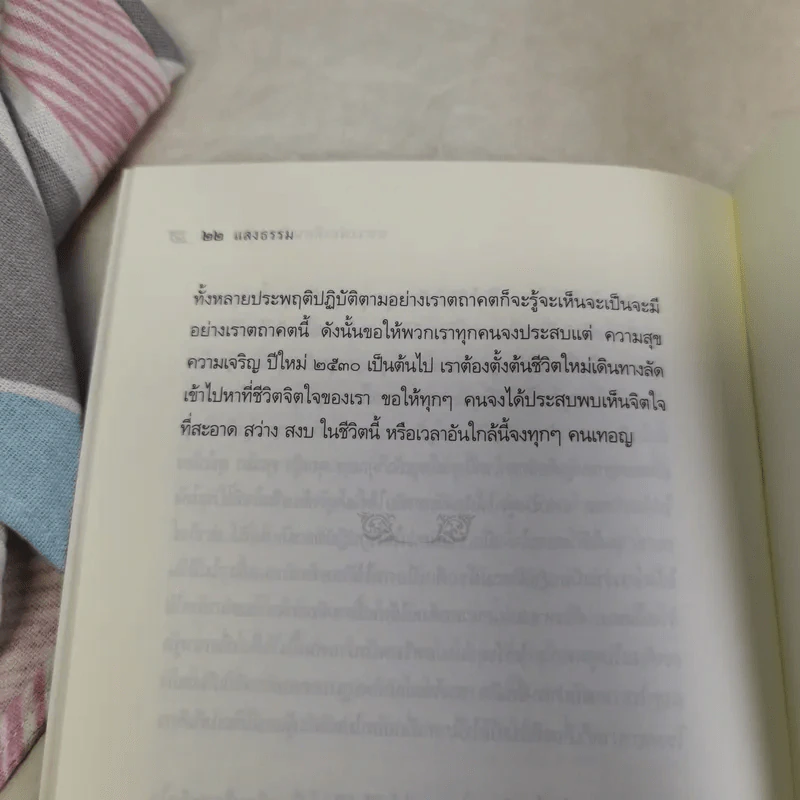 ๒๒ แสงธรรม
ทั้งหลายประพฤติปฏิบัติตามอย่างเราตถาคตก็จะรู้จะเห็นจะเป็นจะมี
อย่างเราตถาคตนี้ ดังนั้นขอให้พวกเราทุกคนจงประสบแต่ ความสุข
ความเจริญ ปีใหม่ ๒๕๓๐ เป็นต้นไป เราต้องตั้งต้นชีวิตใหม่เดินทางลัด
เข้าไปหาที่ชีวิตจิตใจของเรา ขอให้ทุกๆ คนจงได้ประสบพบเห็นจิตใจ
ที่สะอาด สว่าง สงบ ในชีวิตนี้ หรือเวลาอันใกล้นี้จงทุกๆ คนเทอญ